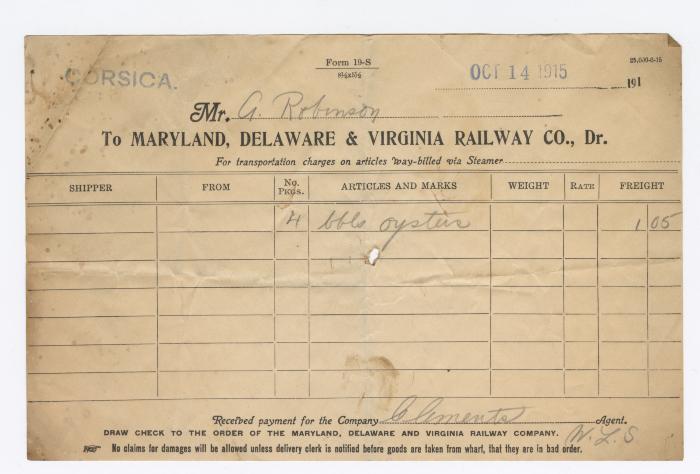 Form 19-S
8¼x5½
25,000-6-15
CORSICA.
OCT 14 1915
191
Mr. A. Robinson
To MARYLAND, DELAWARE & VIRGINIA RAILWAY CO., Dr.
For transportation charges on articles way-billed via Steamer
SHIPPER FROM No. Pkgs. ARTICLES AND MARKS WEIGHT RATE FREIGHT
4 bbls oysters 1 05
Received payment for the Company Clements Agent.
W. L. S
DRAW CHECK TO THE ORDER OF THE MARYLAND, DELAWARE AND VIRGINIA RAILWAY COMPANY.
No claims for damages will be allowed unless delivery clerk is notified before goods are taken from wharf, that they are in bad order.